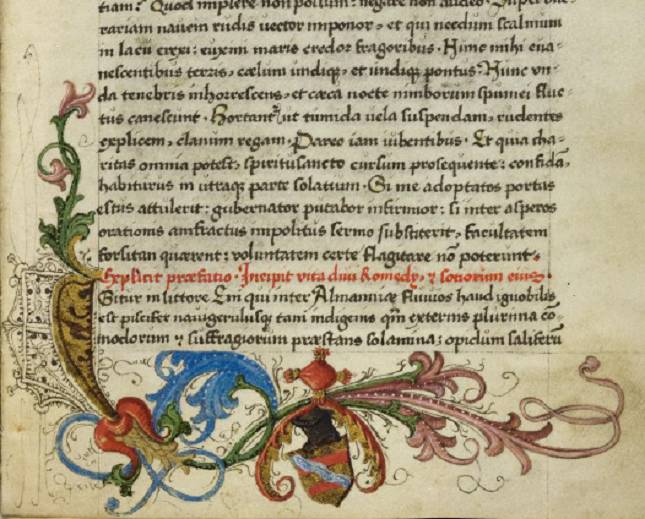 tiam? Quod implere non possum: negare non audeo. Super one-
rariam nauem rudis uector imponor, et qui necdum scalmum
in lacu erexi: euxini maris credor fragoribus. Nunc mihi eua-
nescentibus terris, cælum undiqꝫ, et undiqꝫ pontus. Nunc vn-
da tenebris inhorrescens, et cæca nocte nimborum spumei fluc-
tus canescunt. Hortant ut tumida uela suspendam, rudentes
explicem, clauum regam. Pareo iam iubentibus. Et quia cha-
ritas omnia potest, spiritusancto cursum prosequente: confidā,
habiturus in utraqꝫ parte solatium. Si me ad optatos portus
estus attulerit: gubernator putabor infirmior: si inter asperos
orationis amfractus impolitus sermo substiterit, facultatem
forsitan querent: voluntatem certe flagitare nō poterunt.
Explicit præfatio. Incipit vita diui Romedy, ⁊ sotiorum eius.
Igitur in littore Eni qui inter Almanniæ fluuios haud ignobilis
est piscifer nauigerulusqꝫ tam indigenis qm̄ externis plurima cō-
modorum ⁊ suffragiorum præstans solamina: opidum saliferū